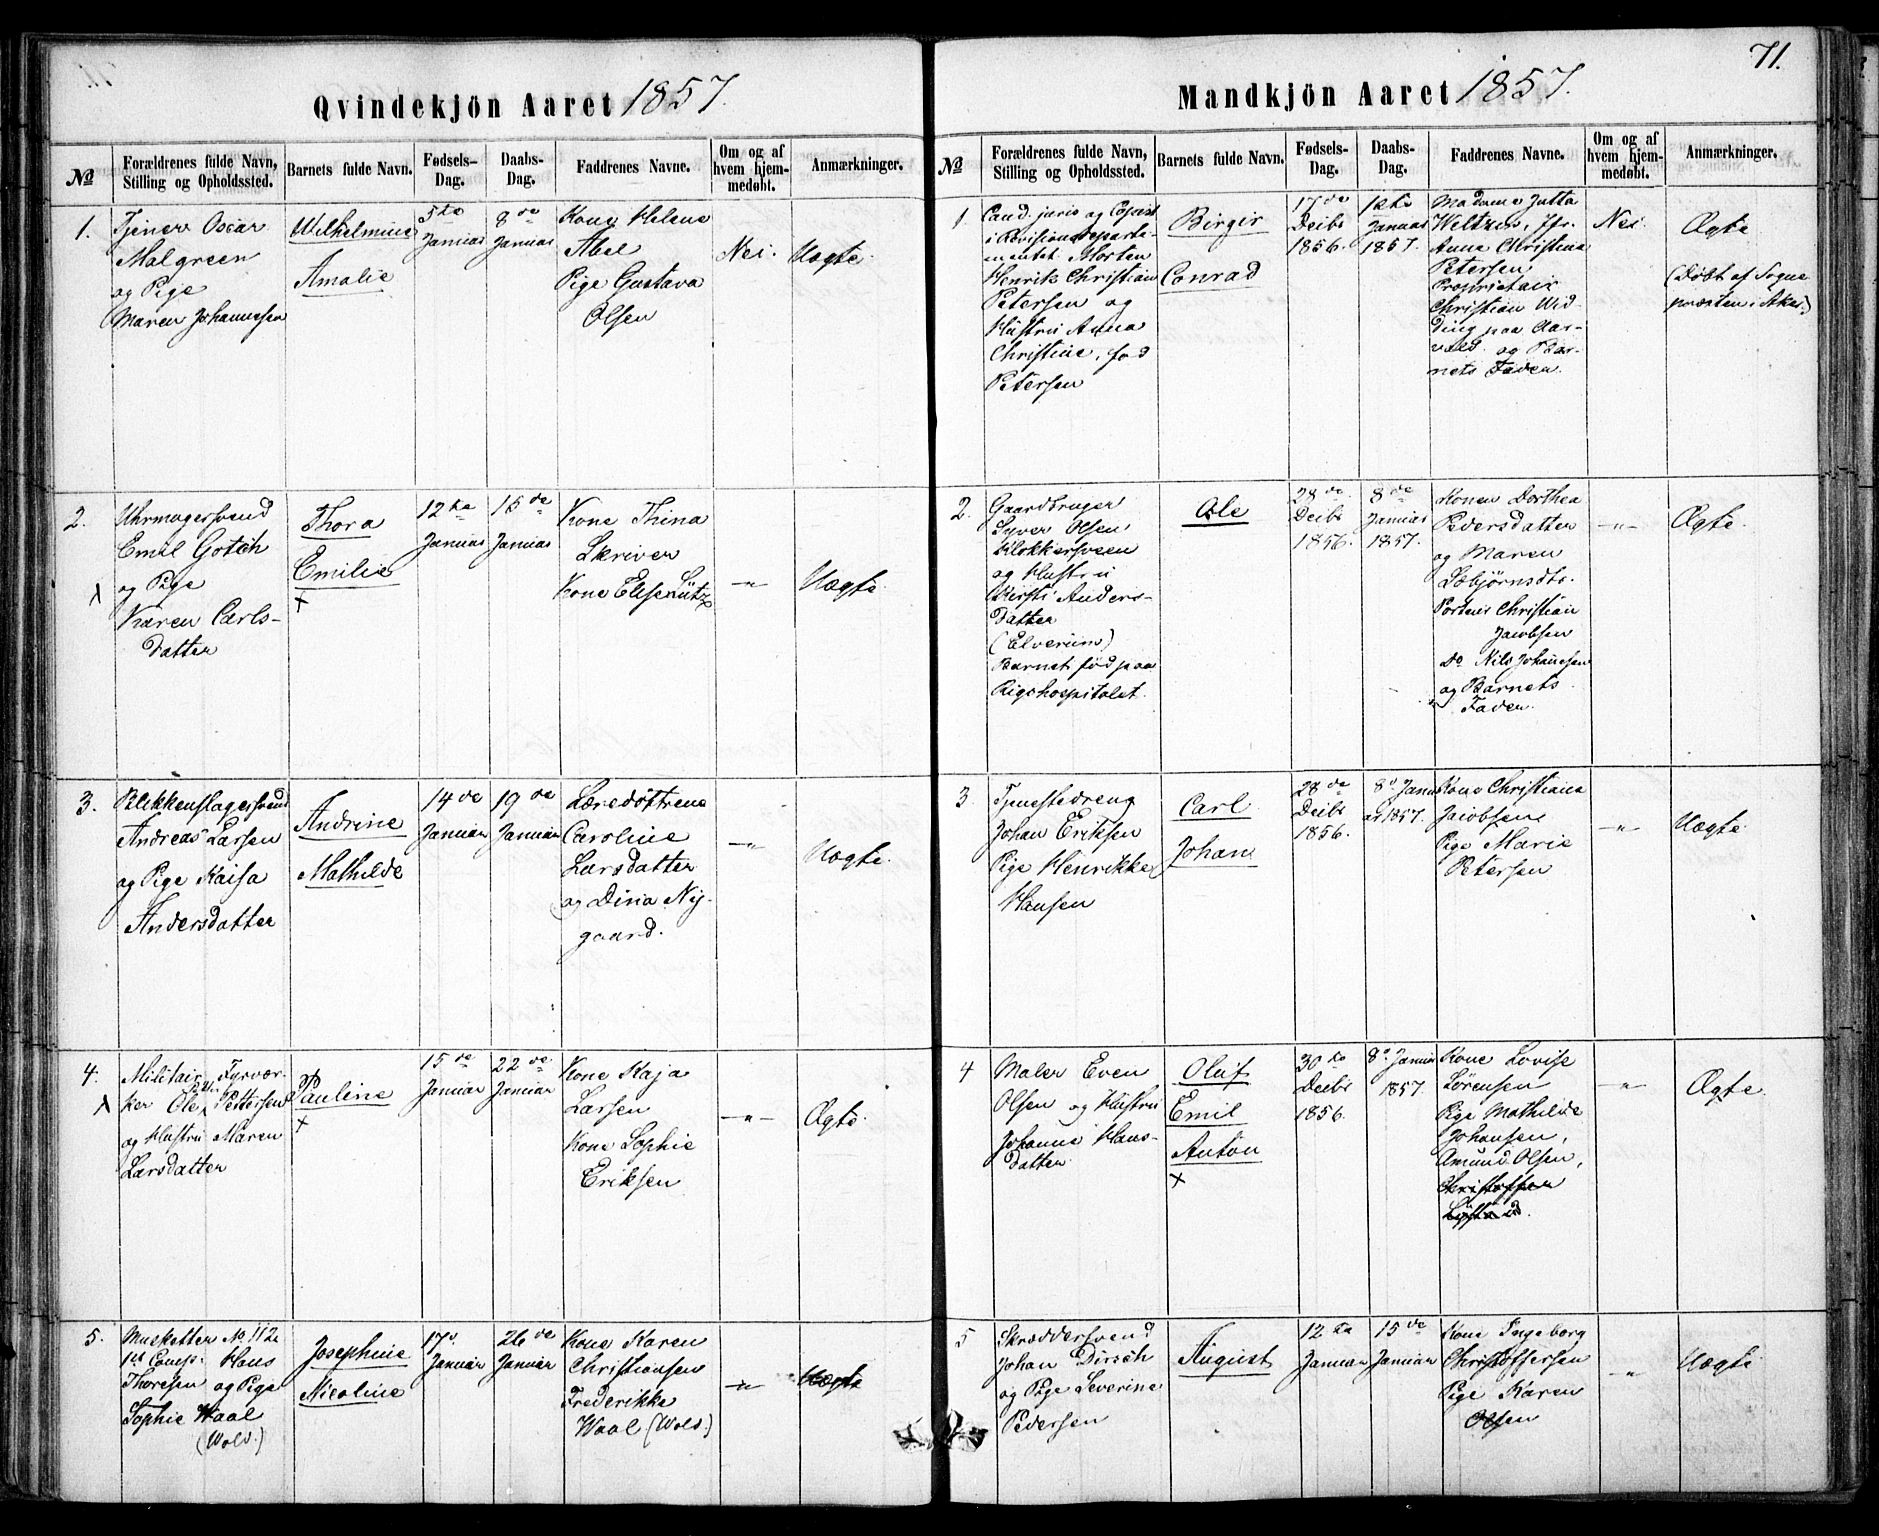 71.
Qvindekjön Aaret 1857.
№
Forældrenes fulde Navn,
Stilling og Opholdssted.
Barnets fulde Navn.
Fødsels-
Dag.
Daabs-
Dag.
Faddrenes Navne.
Om og af
hvem hjem-
medøbt.
Anmærkninger.
1.
Tjener Oscar
Malgreen
og Pige
Maren Johannesen
Wilhelmine
Amalie
5te
Januar
8de
Januar
Kone Helene
Abel
Pige Gustava
Olsen
Nei.
Uægte
2.
Uhrmagersvend
Emil Gotch
og Pige
Karen Carls-
datter
Thora
Emilie
12te
Januar
15de
Januar
Kone Thina
Skriver
Kone Elise Lütz
-"-
Uægte
3.
Blikkenslagersvend
Andreas Larsen
og Pige Kaisa
Andersdatter
Andrine
Mathilde
14de
Januar
19de
Januar
Læredøttrene
Caroline
Larsdatter
og Dina Ny-
gaard.
-"-
Uægte.
4.
Militair Fyrvær-
ker Ole Pettersen
og Hustru Maren
Larsdatter
Pauline
15de
Januar
22de
Januar
Kone Kaja
Larsen
Kone Sophie
Eriksen
-"-
Ægte.
5.
Musketter No 112
1st Comp: Hans
Thoresen og Pige
Sophie Waal
(Wold.)
Josephine
Nicoline
17d.
Januar
26de
Januar
Kone Karen
Christiansen
Frederikke
Waal (Wold.)
-"-
Uægte
Mandkjön Aaret 1857.
№
Forældrenes fulde Navn,
Stilling og Opholdssted.
Barnets fulde Navn.
Fødsels-
Dag.
Daabs-
Dag.
Faddrenes Navne.
Om og af
hvem hjem-
medøbt.
Anmærkninger.
1.
Cand. juris og Copist
i Revisionsdeparte-
mentet Morten
Henrik Christian
Petersen og
Hustru Anna
Christine, fød
Petersen
Birgir
Conrad
17de
Decbr
1856.
1ste
Januar
1857.
Madame Jutta
Weltzin, Jfr.
Anne Christina
Petersen
Proprietair
Christian Wid-
ding paa Aar-
vold og Bar-
nets Fader.
Nei.
Ægte
(Døbt af Sogne
præsten i Aker.)
2.
Gaardbruger
Syver Olsen
Klokkersveen
og Hustru
Kirsti Anders-
datter
(Elverum)
Barnet født paa
Rigshospitalet.
Ole
28de
Decbr
1856.
8de
Januar
1857.
Konen Dorthea
Pedersdatter
og Maren
Esbjørnsdtr.
Portner Christian
Jacobsen
Do Nils Johannesen
og Barnets
Fader.
-"-
Ægte.
3
Tjenestedreng
Johan Eriksen
Pige Henrikke
Hansen
Carl
Johan
28de
Decbr
1856.
8d Janu
ar 1857.
Kone Christiana
Jacobsen
Pige Marie
Petersen
-"-
Uægte
4
Maler Even
Olsen og Hustru
Johanne Hans-
datter
Oluf
Emil
Anton
30te
Decbr
1856.
8de Januar
1857.
Kone Lovise
Sørensen
Pige Mathilde
Johansen,
Amund Olsen,
Christoffer
-"-
Ægte.
5
Skræddersvend
Johan Dirsch
og Pige Severine
Pedersen
August
12te
Januar
15de
Januar
Kone Ingeborg
Christoffersen
Pige Karen
Olsen
-"-
Uægte